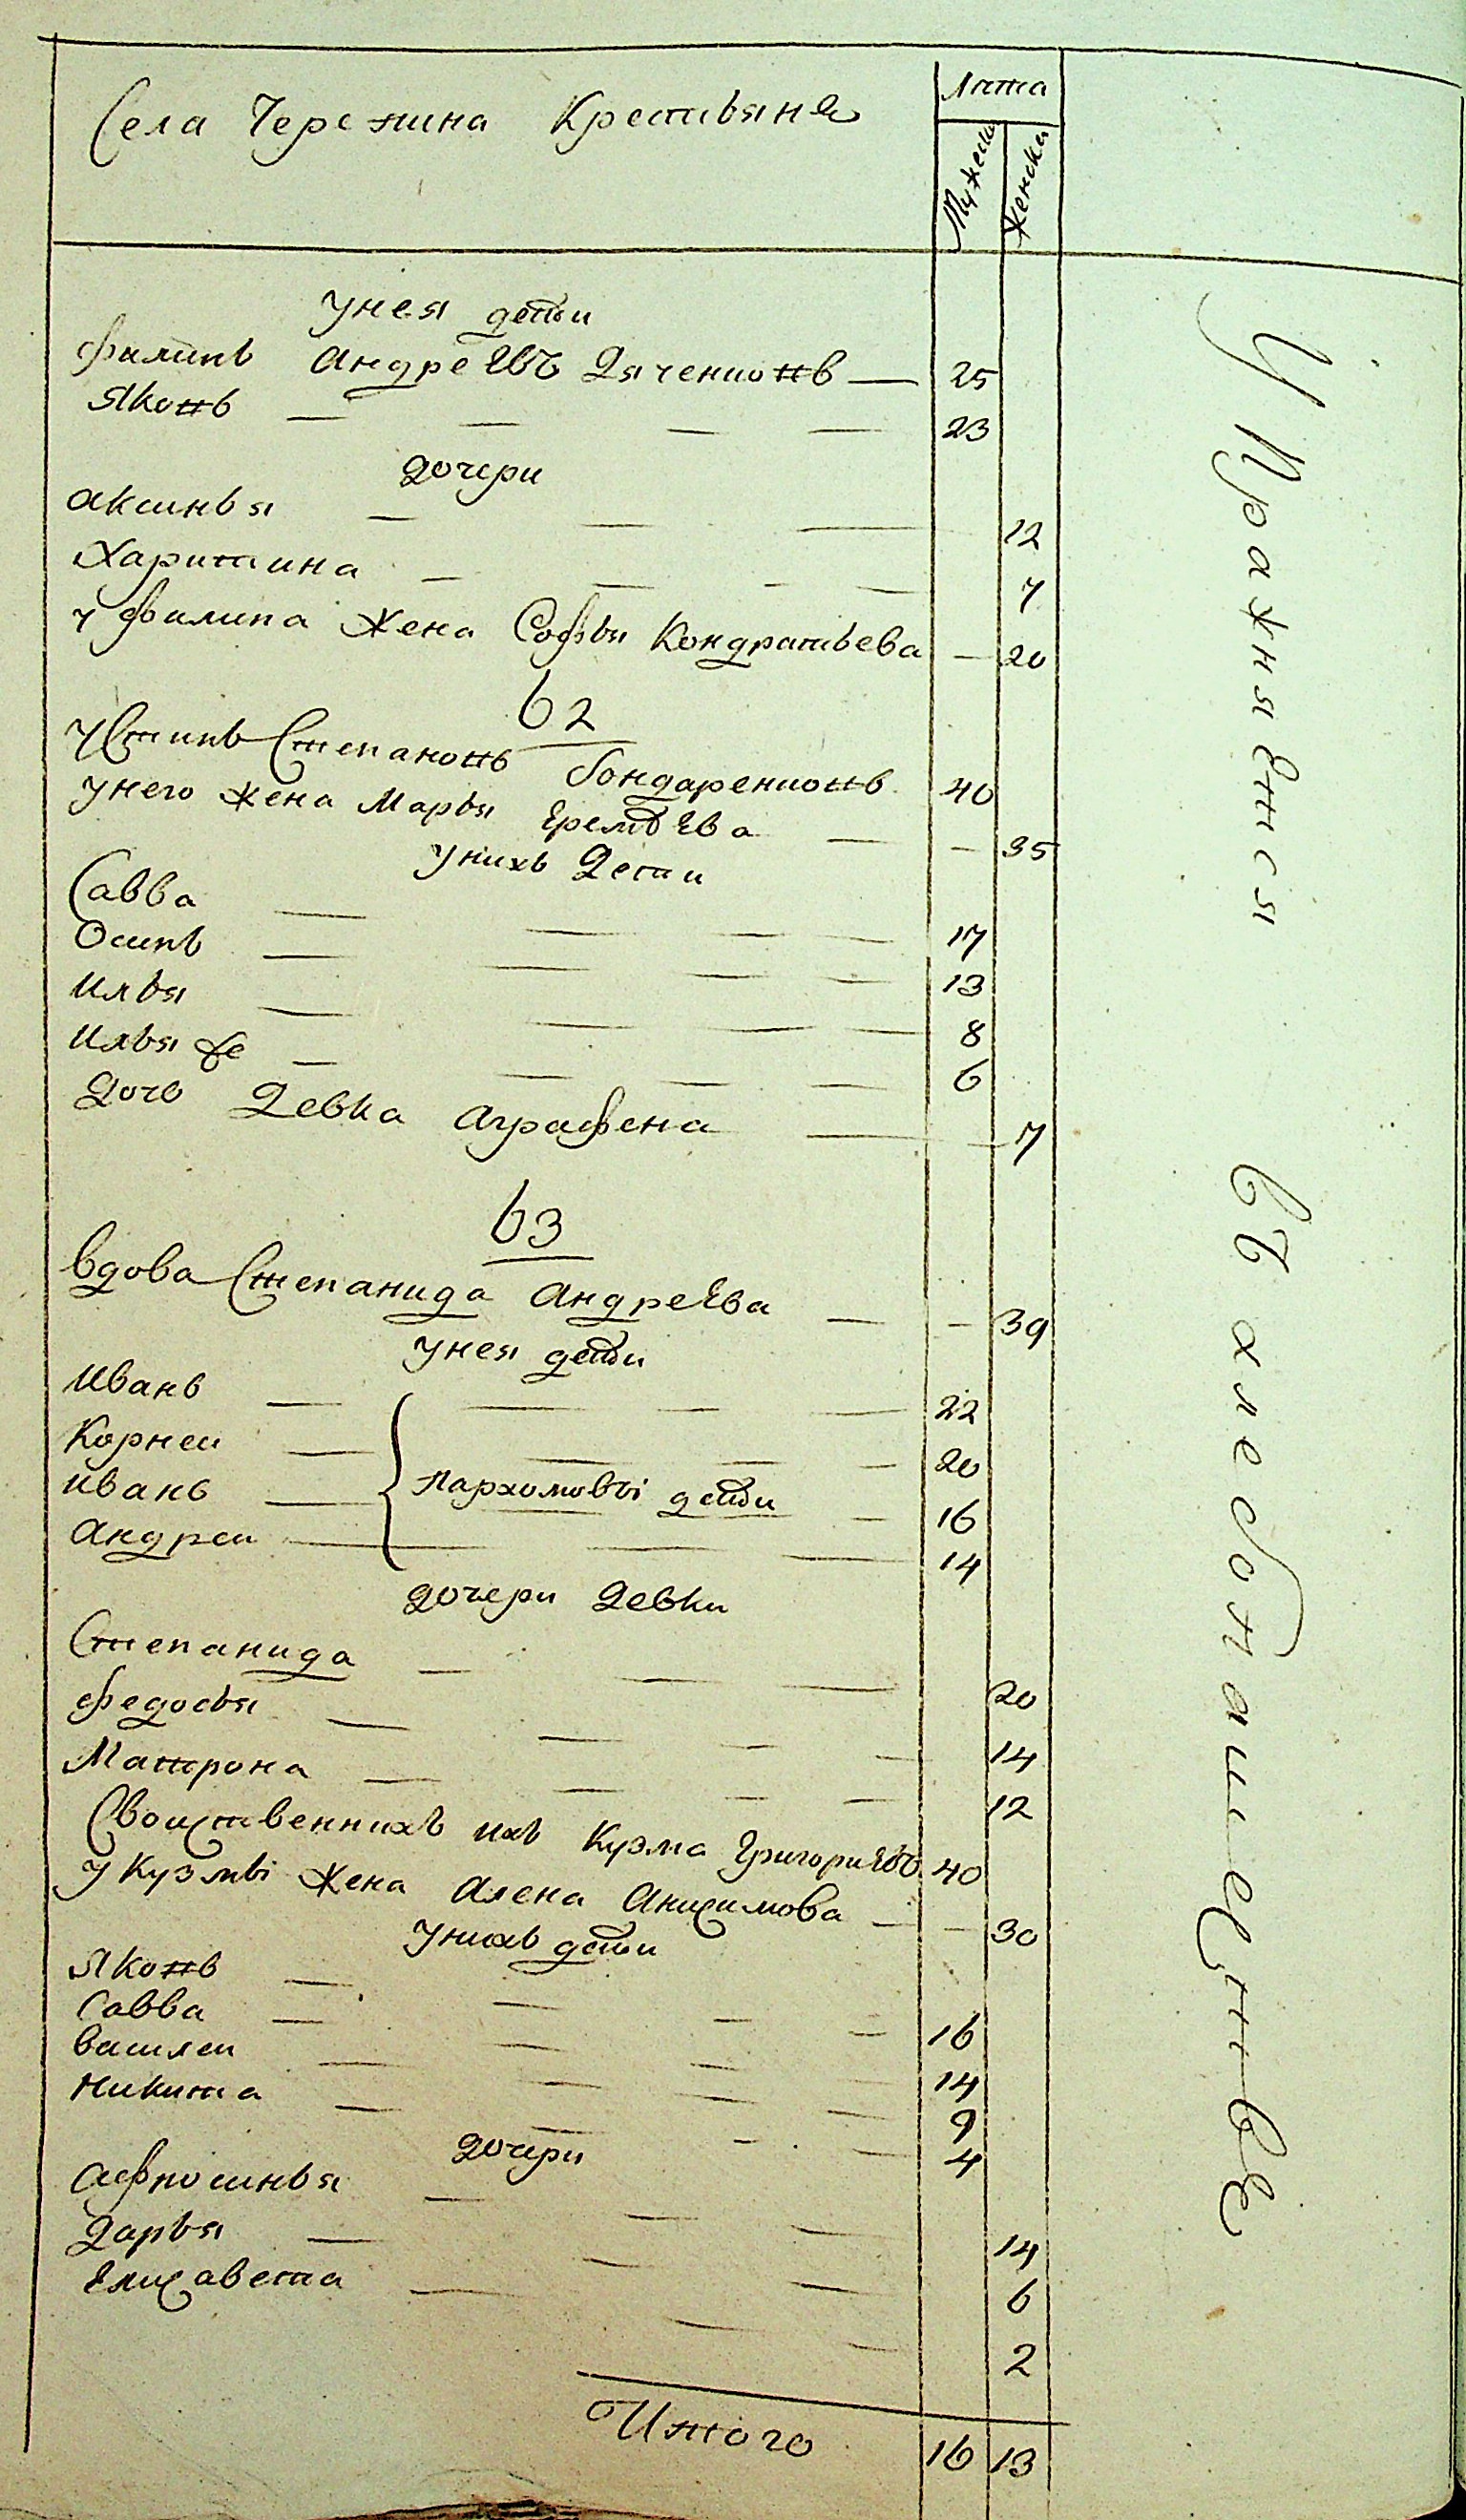 Села Черемина Крестьяне
Лѣта
Мужеска
Женска
унея дети
Филипъ Андреевъ Дяченковъ — 25
Яковъ — — — — 23
дочери
Аксинья — — — 12
Харитина — — — — 7
у Филипа жена Софья Кондратьева — 20
62
Устинъ Степановъ Бондаренковъ 40
унего жена Марья Еремѣева — — 35
унихъ Дети
Савва — — — — 17
Осипъ — — — — 13
Илья — — — — 8
Илья же — — — — 6
Дочь Девка Аграфена — — 7
63
Вдова Степанида Андреева — — 39
унея дети
Иванъ — — — — 22
Корнеи — — — — 20
Иванъ — Пархомовы дети — 16
Андреи — — — 14
дочери Девки
Степанида — — — 20
Федосья — — — — 14
Матрона — — — — 12
Своиственникъ ихъ Кузма Григориевъ 40
у Кузмы жена Алена Анисимова — — 30
унихъ дети
Яковъ — — — — 16
Савва — — — — 14
Василеи — — — — 9
Никита — — — — 4
дочери
Афросинья — — — 14
Дарья — — — 6
Елисавета — — — 2
Итого 16 13
Упражняетися въ хлебопашестве